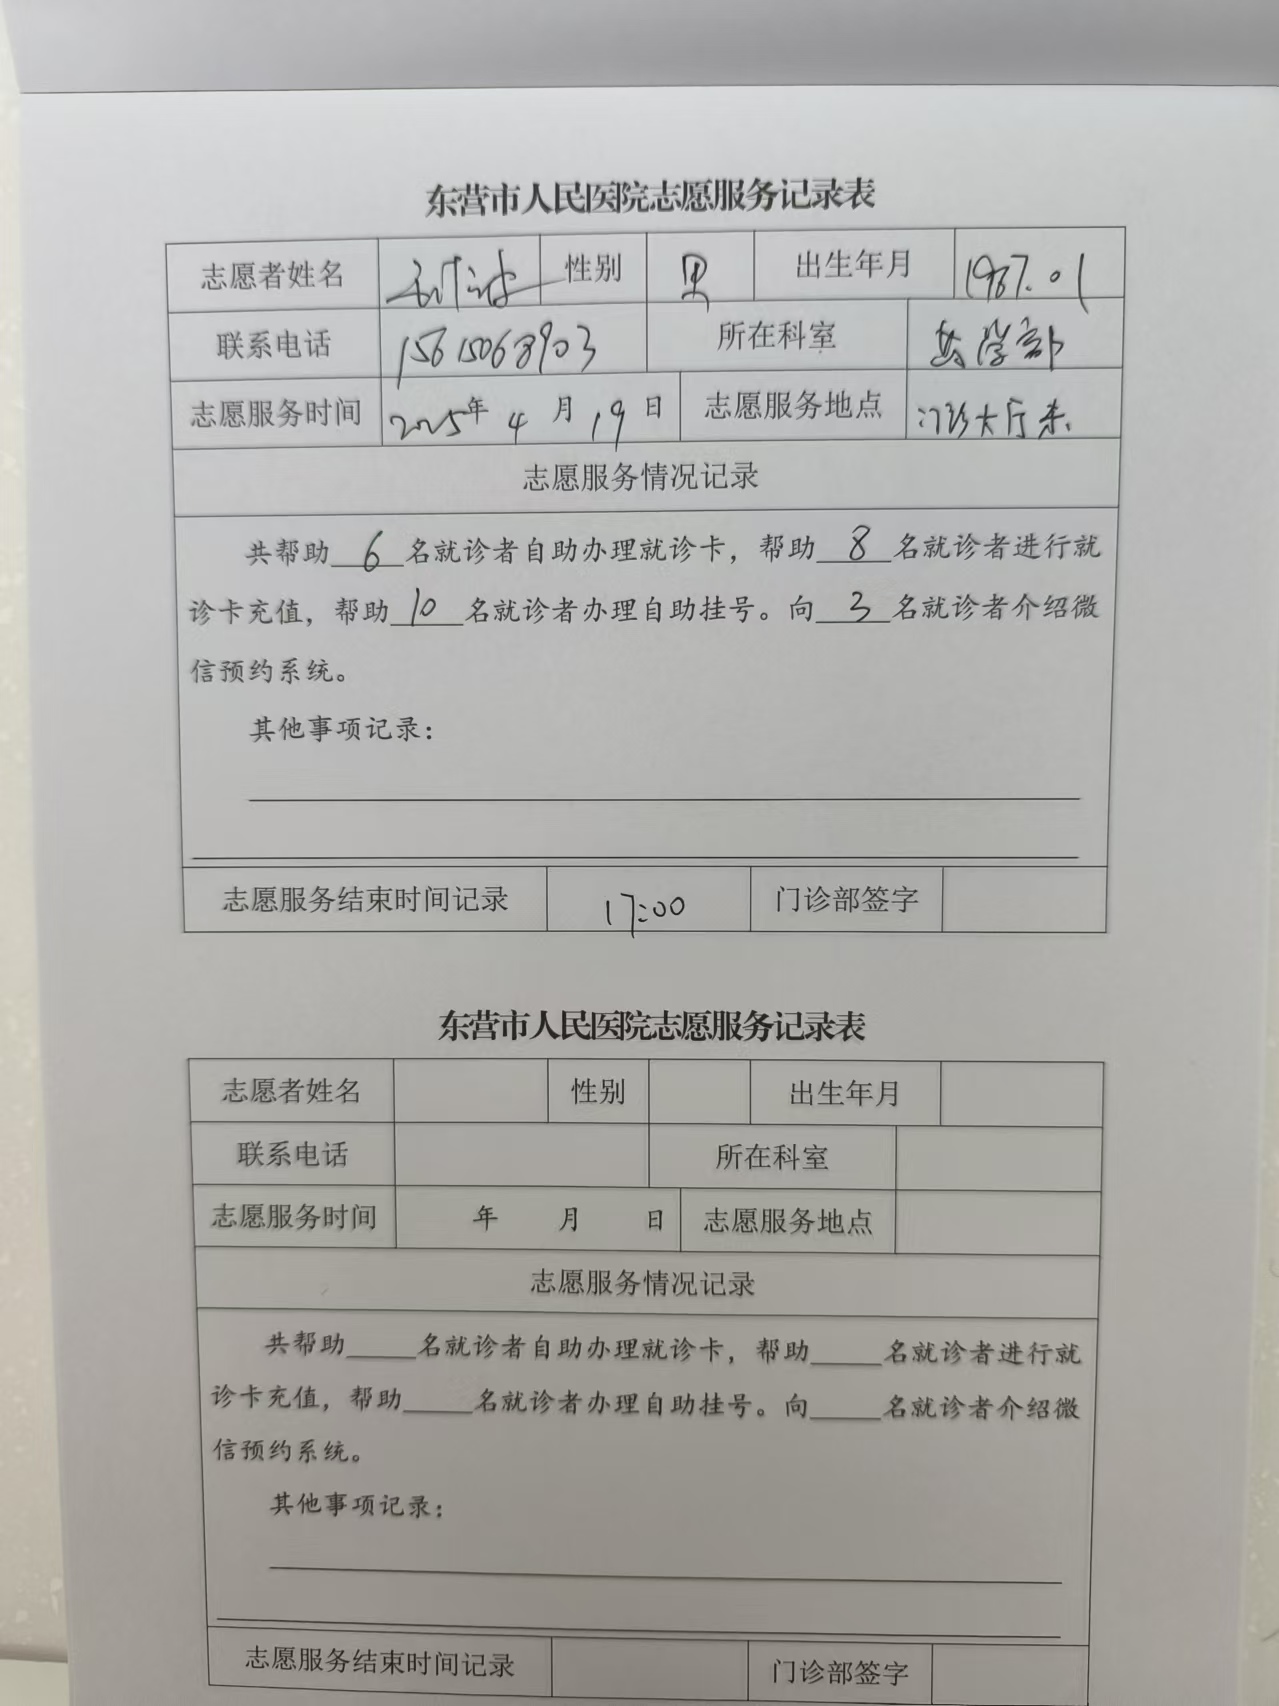 东营市人民医院志愿服务记录表
志愿者姓名 性别 男 出生年月 1987.01
联系电话 15615068903 所在科室 教学部
志愿服务时间 2025年 4 月 19 日 志愿服务地点 门诊大厅东
志愿服务情况记录
共帮助 6 名就诊者自助办理就诊卡，帮助 8 名就诊者进行就
诊卡充值，帮助 10 名就诊者办理自助挂号。向 3 名就诊者介绍微
信预约系统。
其他事项记录：
志愿服务结束时间记录 17:00 门诊部签字
东营市人民医院志愿服务记录表
志愿者姓名 性别 出生年月
联系电话 所在科室
志愿服务时间 年 月 日 志愿服务地点
志愿服务情况记录
共帮助_____名就诊者自助办理就诊卡，帮助_____名就诊者进行就
诊卡充值，帮助_____名就诊者办理自助挂号。向_____名就诊者介绍微
信预约系统。
其他事项记录：
志愿服务结束时间记录 门诊部签字